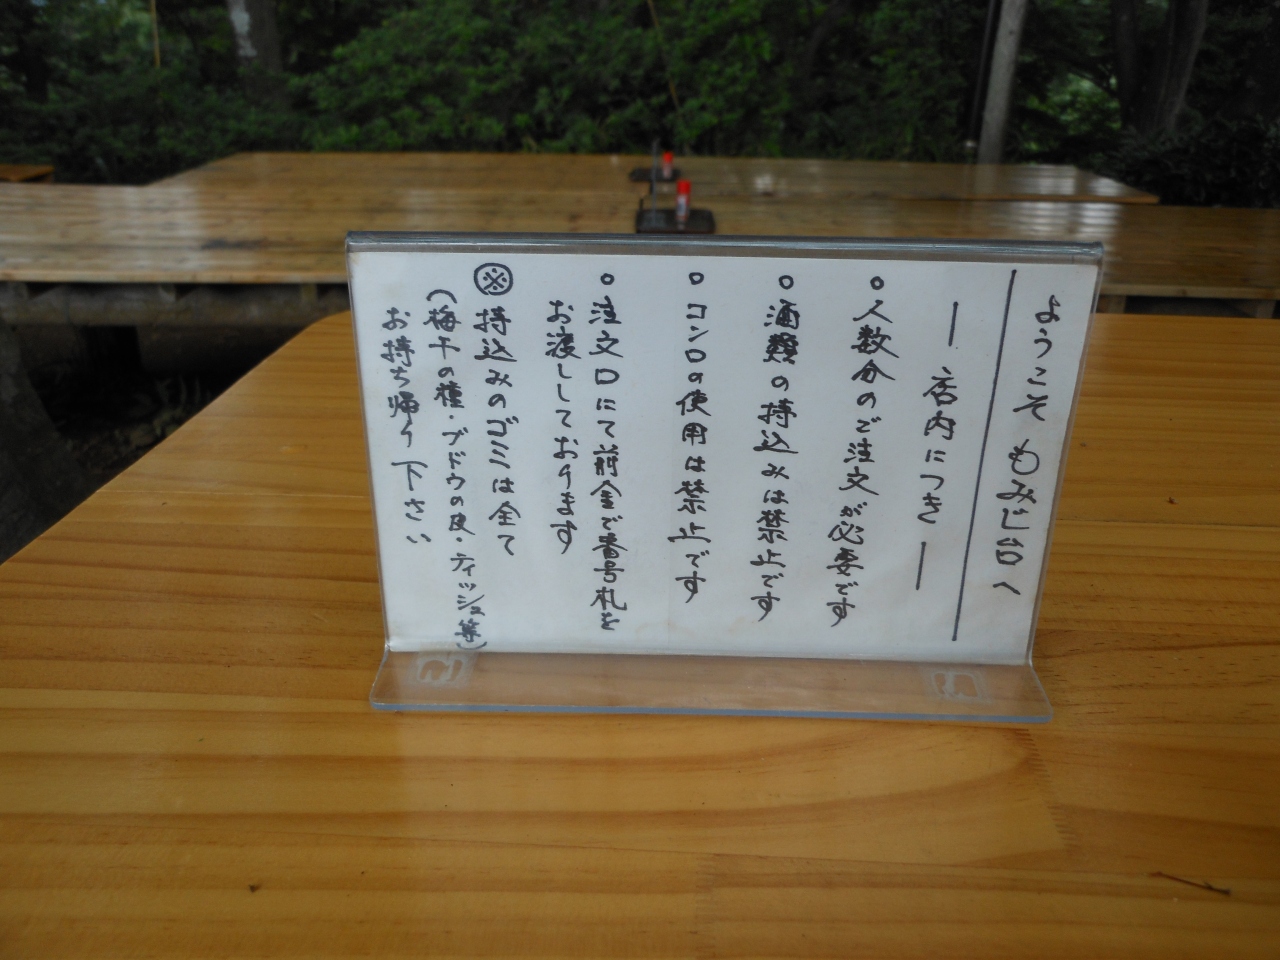 ようこそ もみじ台へ
― 店内につき ―
○ 人数分のご注文が必要です
○ 酒類の持込みは禁止です
○ コンロの使用は禁止です
○ 注文口にて前金で番号札を
お渡ししております
※ 持込みのゴミは全て
(梅干の種・ブドウの皮・ティッシュ等)
お持ち帰り下さい